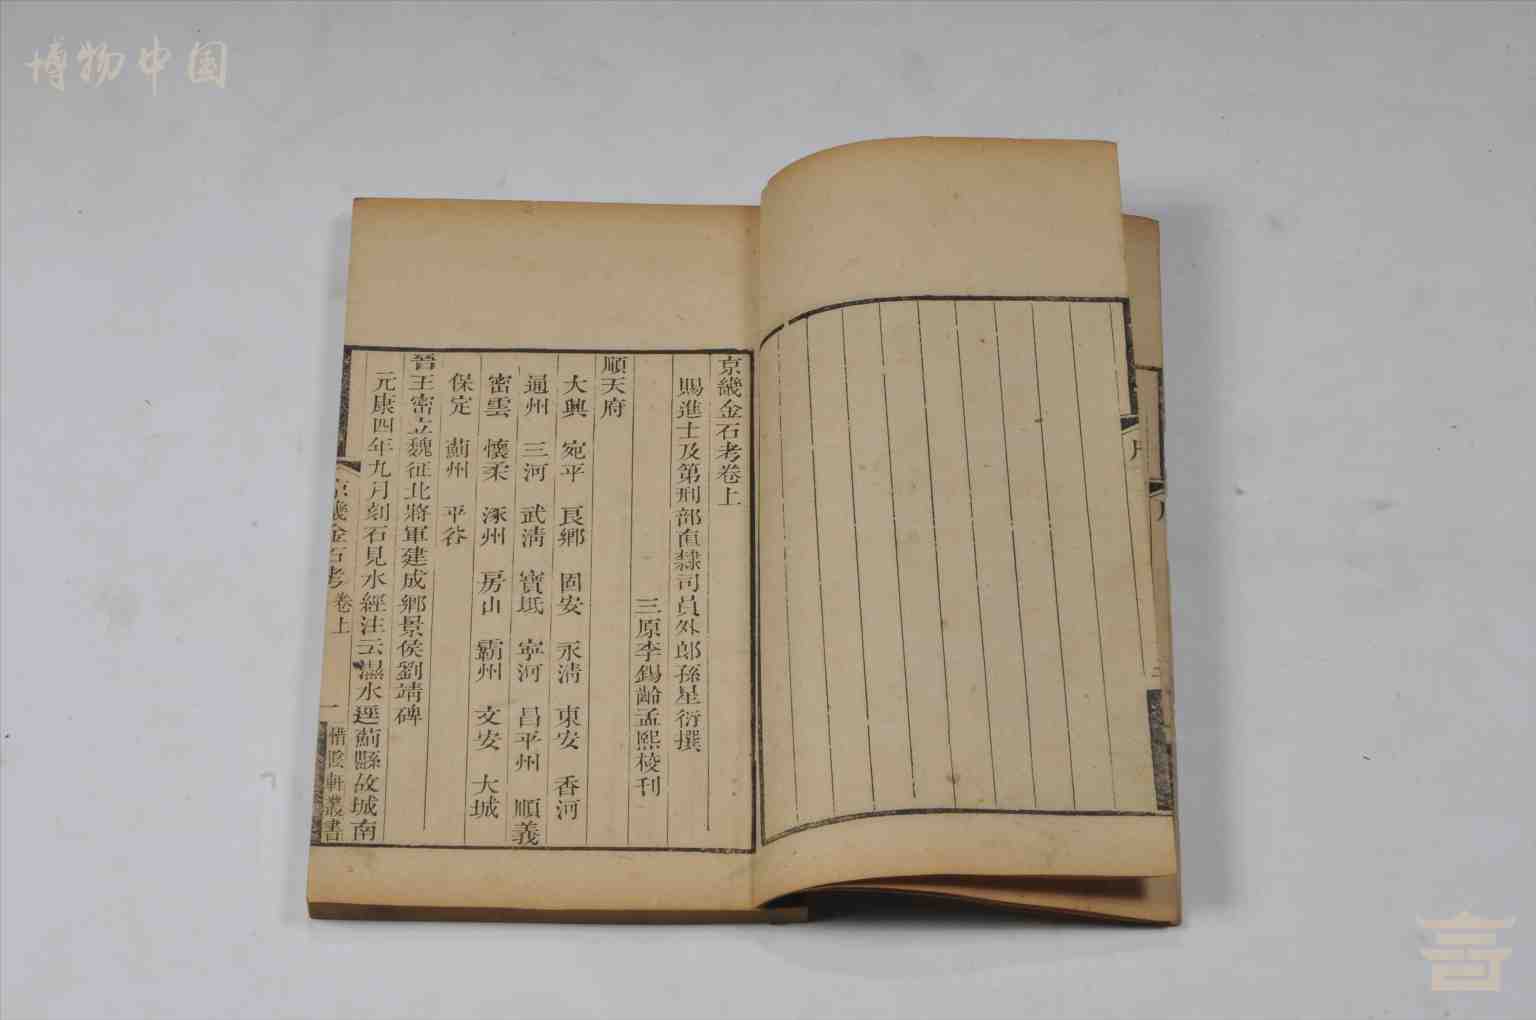 博物中国
京畿金石考卷上
賜進士及第刑部直隸司員外郎孫星衍撰
三原李錫齡孟熙校刊
順天府
大興 宛平 良鄉 固安 永清 東安 香河
通州 三河 武清 寶坻 寧河 昌平州 順義
密雲 懷柔 涿州 房山 霸州 文安 大城
保定 薊州 平谷
晉王密立魏征北將軍建成鄉景侯劉靖碑
元康四年九月刻石見水經注云濕水逕薊縣故城南
京畿金石考 卷上 一 惜陰軒叢書